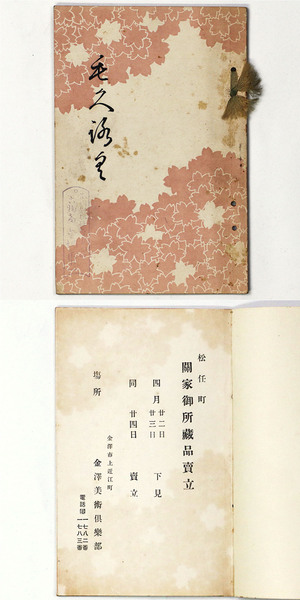 毛久路具
松任町
關家御所藏品賣立
四月 廿二日 廿三日 下見
同 廿四日 賣立
塲所
金澤市上近江町
金澤美術倶樂部
電話 一七八二番
一七八三番